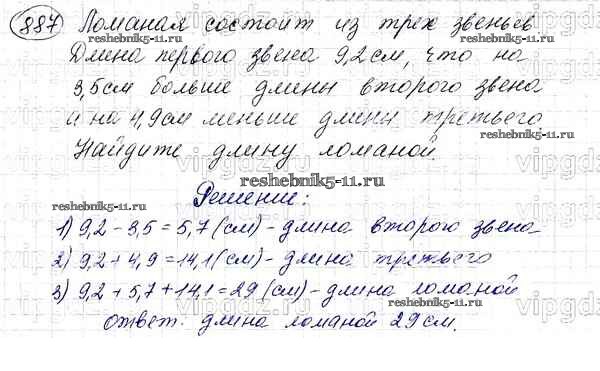 887 Ломаная состоит из трех звеньев
Длина первого звена 9,2 см, что на
3,5 см больше длины второго звена
и на 4,9 см меньше длины третьего
Найдите длину ломаной.
Решение:
1) 9,2 - 3,5 = 5,7 (см) - длина второго звена
2) 9,2 + 4,9 = 14,1 (см) - длина третьего
3) 9,2 + 5,7 + 14,1 = 29 (см) - длина ломаной
ответ: длина ломаной 29 см.
reshebnik5-11.ru
reshebnik5-11.ru
reshebnik5-11.ru
reshebnik5-11.ru
reshebnik5-11.ru
reshebnik5-11.ru